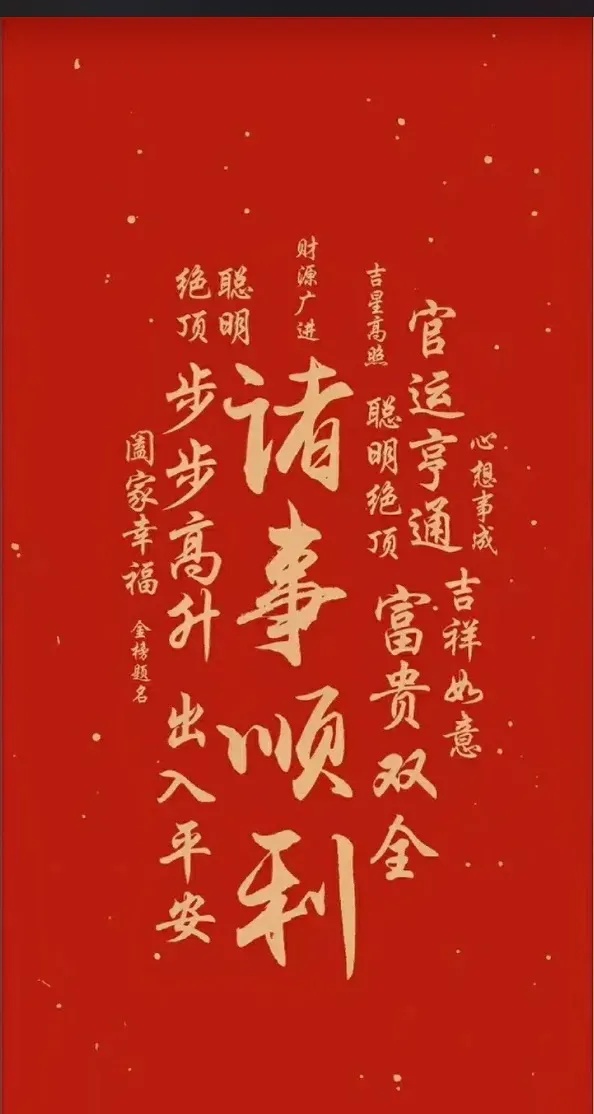 心想事成
吉祥如意
官运亨通
富贵双全
吉星高照
聪明绝顶
财源广进
诸事顺利
聪明
绝顶
步步高升
出入平安
阖家幸福
金榜题名